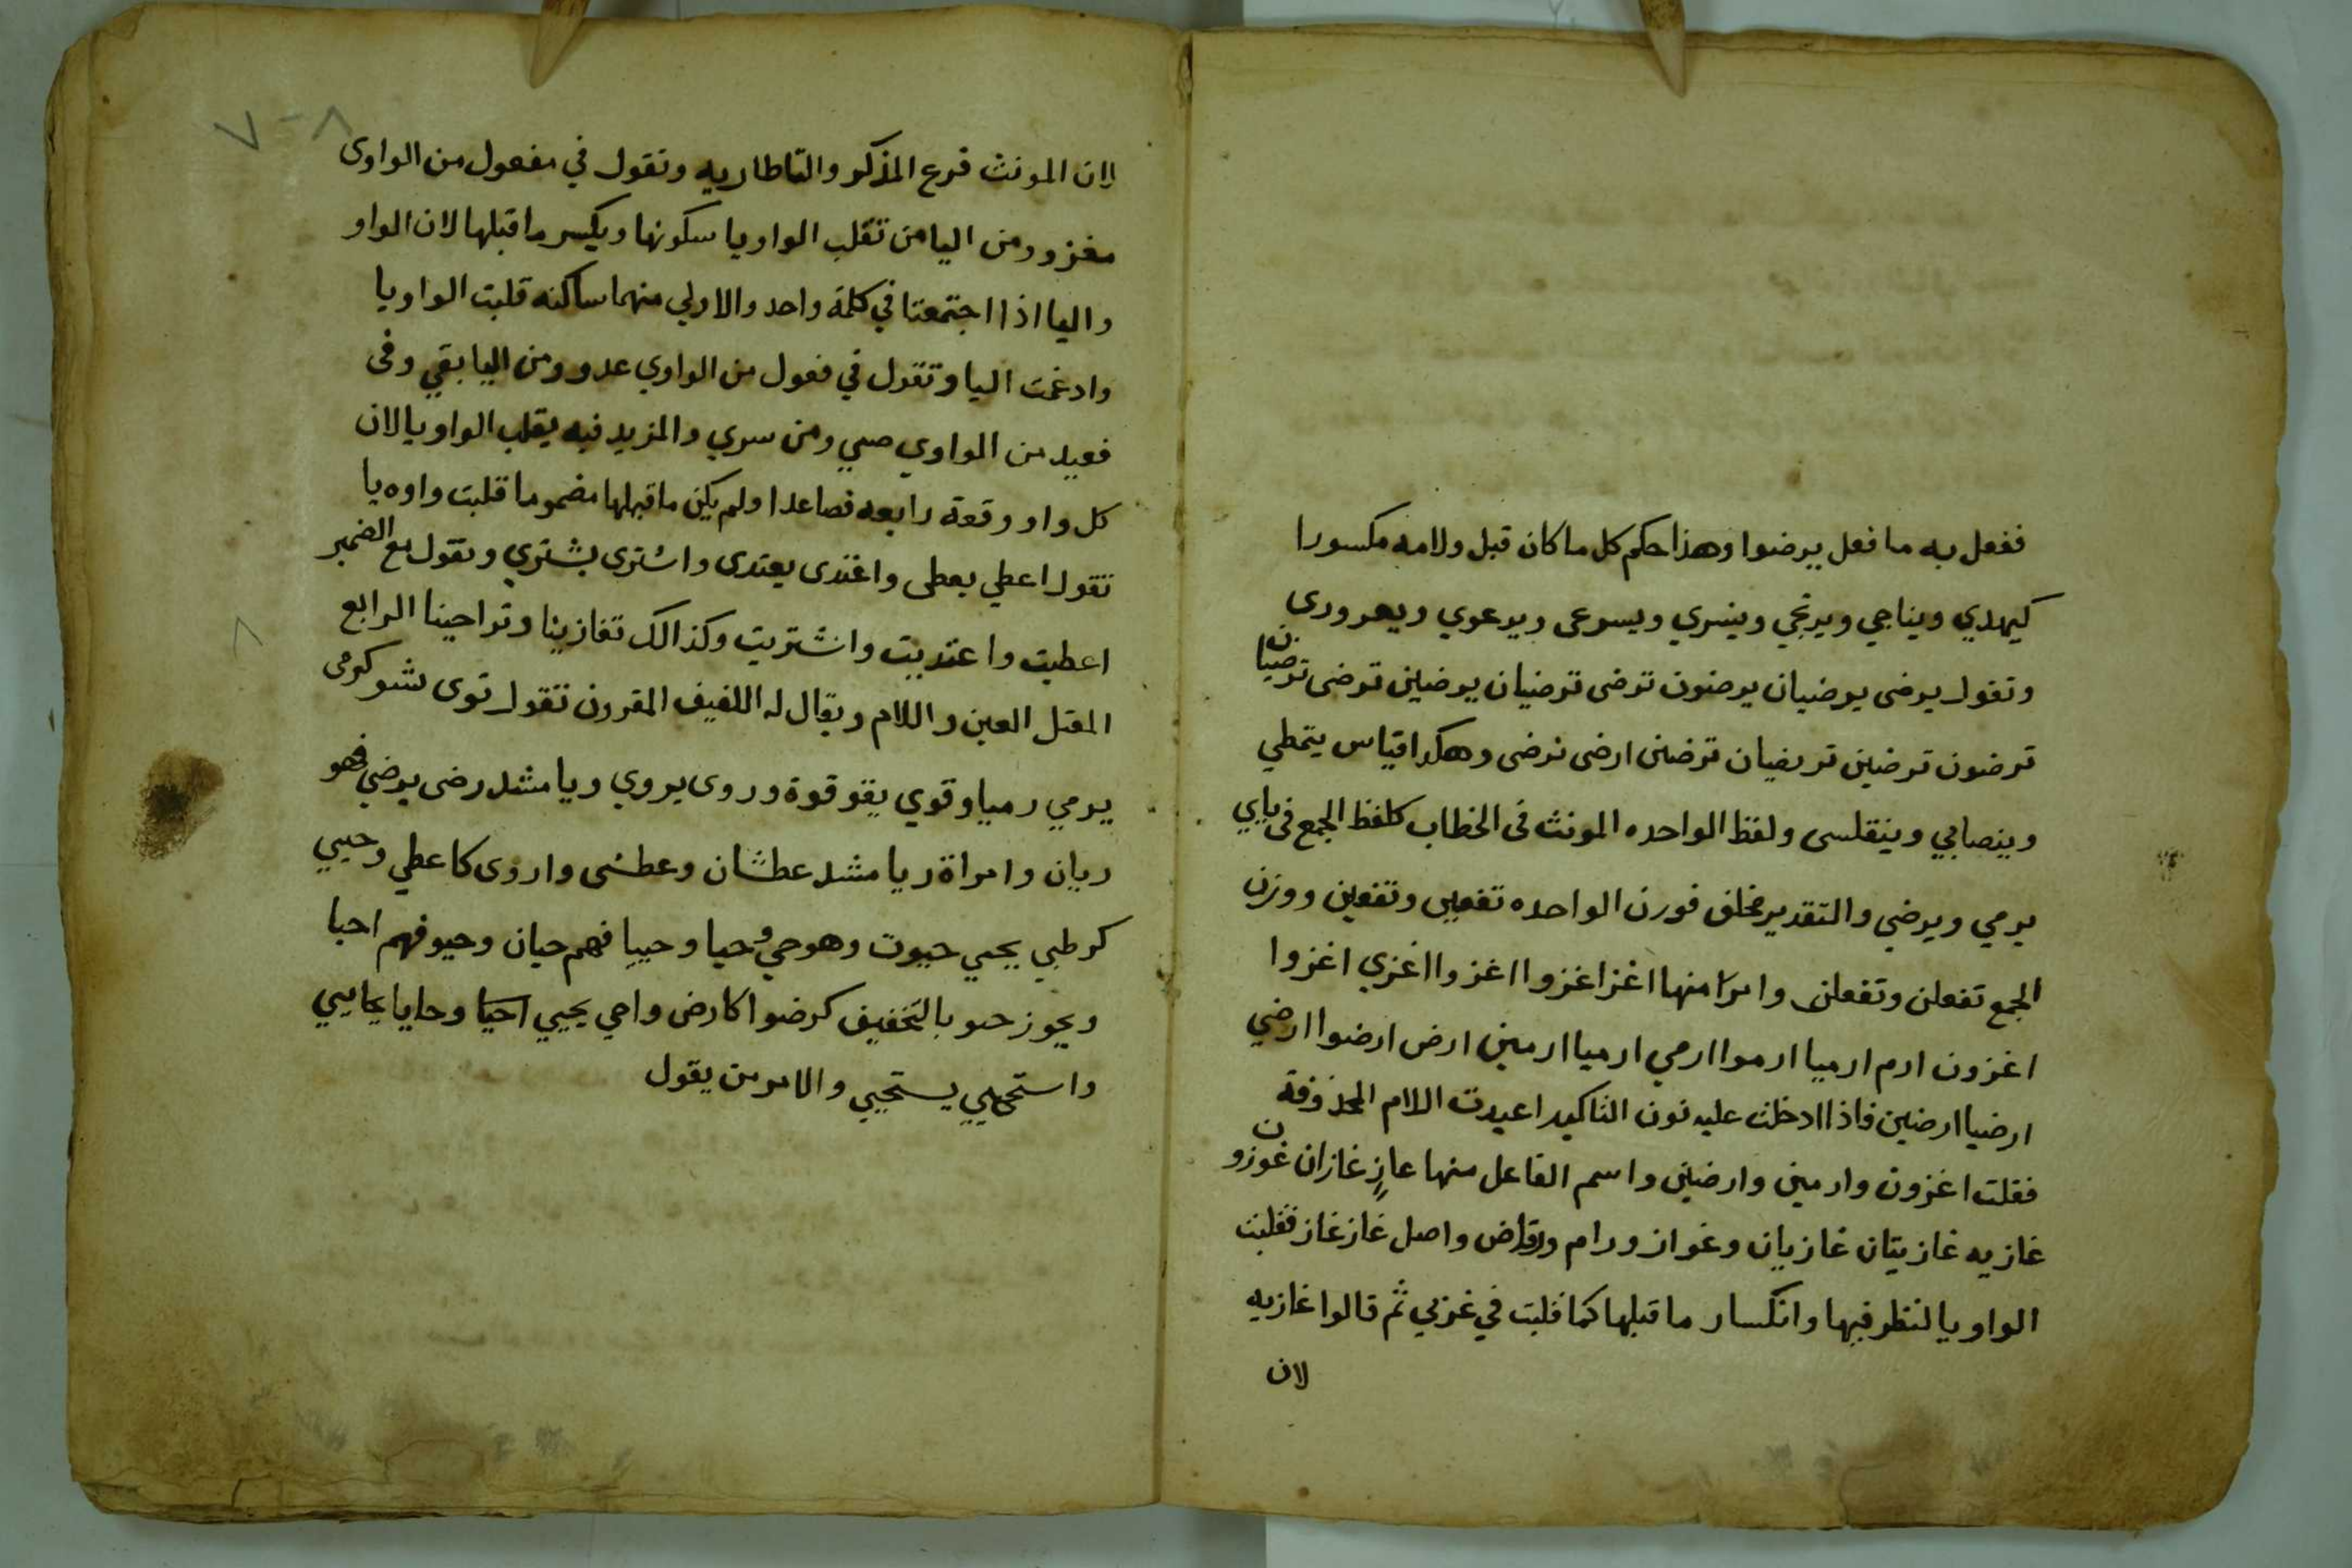 ففعل به ما فعل بيرضوا وهذا حكم كل ما كان قبل ولامه مكسورا
كيهدي ويناجي ويرتجي وينسري ويسوعى ويرعوي ويعرورى
وتقول يرضى يرضيان يرضون ترضى ترضيان يرضين ترضى ترضيان
ترضون ترضين ترضيان ترضين ارضى نرضى وهكدا قياس يتمطي
ويتصابي ويتقلسى ولفظ الواحده المونث فى الخطاب كلفظ الجمع فى بابي
يرمي ويرضي والتقدير مختلف فوزن الواحده تفعين وتفعين ووزن
الجمع تفعلن وتفعلن والامر منها اغز اغزوا اغزوا اغزي اغزوا
اغزون ارم ارميا ارموا ارمي ارميا ارمين ارض ارضوا ارضي
ارضيا ارضين فاذا ادخلت عليه نون التاكيد اعيدت اللام المحذوفة
فقلت اغزون وارمين وارضين واسم الفاعل منها غازٍ غازان غوزون
غازيه غازيتان غازيان وغواز ورام وراض واصل غاز غاز فقلبت
الواو يا لتطرفها وانكسار ما قبلها كما قلبت في غزي ثم قالوا غازيه
لان
٧-٨
لان المونث فرع المذكر والتا طاريه وتقول في مفعول من الواوى
مغزو ومن اليا من تقلب الواو يا سكونها ويكسر ما قبلها لان الواو
واليا اذا اجتمعتا في كلمة واحد والاولي منهما ساكنه قلبت الواو يا
وادغمت اليا وتقول في فعول من الواوي عدو ومن اليا بقي وفى
فعيل من الواوي صبي ومن سري والمزيد فيه يقلب الواو يا لان
كل واو وقعة رابعه فصاعدا ولم يكن ما قبلها مضموما قلبت واوه يا
تقول اعطي يعطى واعتدى يعتدى واشترى يشتري وتقول مع الضمير
اعطيت واعتديت واشتريت وكذالك تغازينا وتراجينا الرابع
٨
المعتل العين واللام ويقال له اللفيف المقرون تقول توى شو كرمى
يرمي رميا وقوي يقو قوة وروى يروي ريا مثل رضى يرضي فهو
ريان وامراة ريا مثل عطشان وعطشى واروى كاعطي وحيي
كرضي يحيي حيوت وهو حي وحيا وحييا فهم حيان وحيو فهم احيا
ويجوز حيو بالتخفيف كرضوا كارض واحي يحيي احيا وحايا يحايي
واستحيي يستحيي والامر من يقول